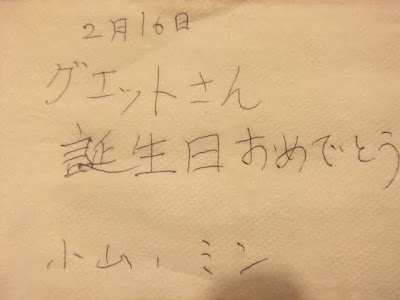 2月16日
グエットさん
誕生日おめでとう
小山、ミン